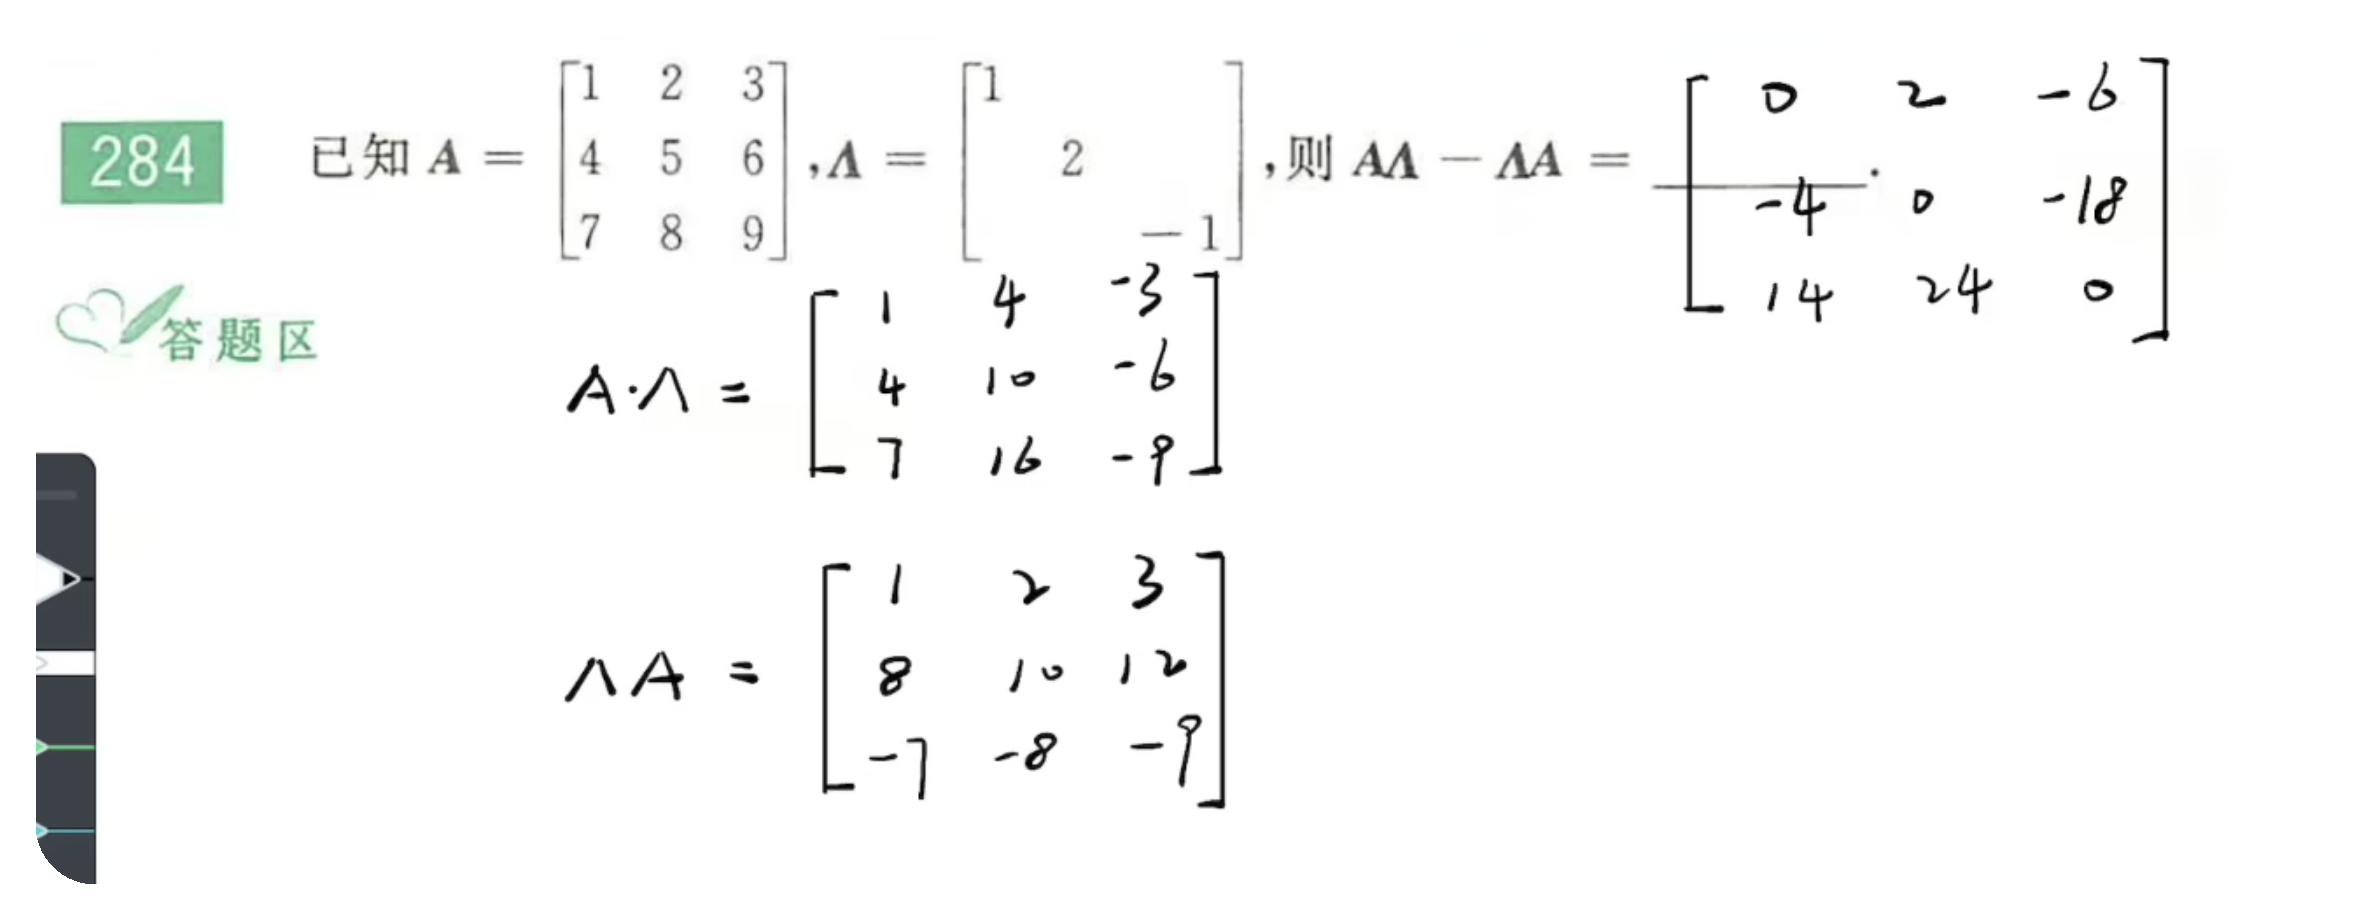 284 已知 A = [1 2 3; 4 5 6; 7 8 9], Λ = [1; 2; -1], 则 AΛ - ΛA = ______. [0 2 -6; -4 0 -18; 14 24 0]
答题区
A·Λ = [1 4 -3; 4 10 -6; 7 16 -9]
ΛA = [1 2 3; 8 10 12; -7 -8 -9]